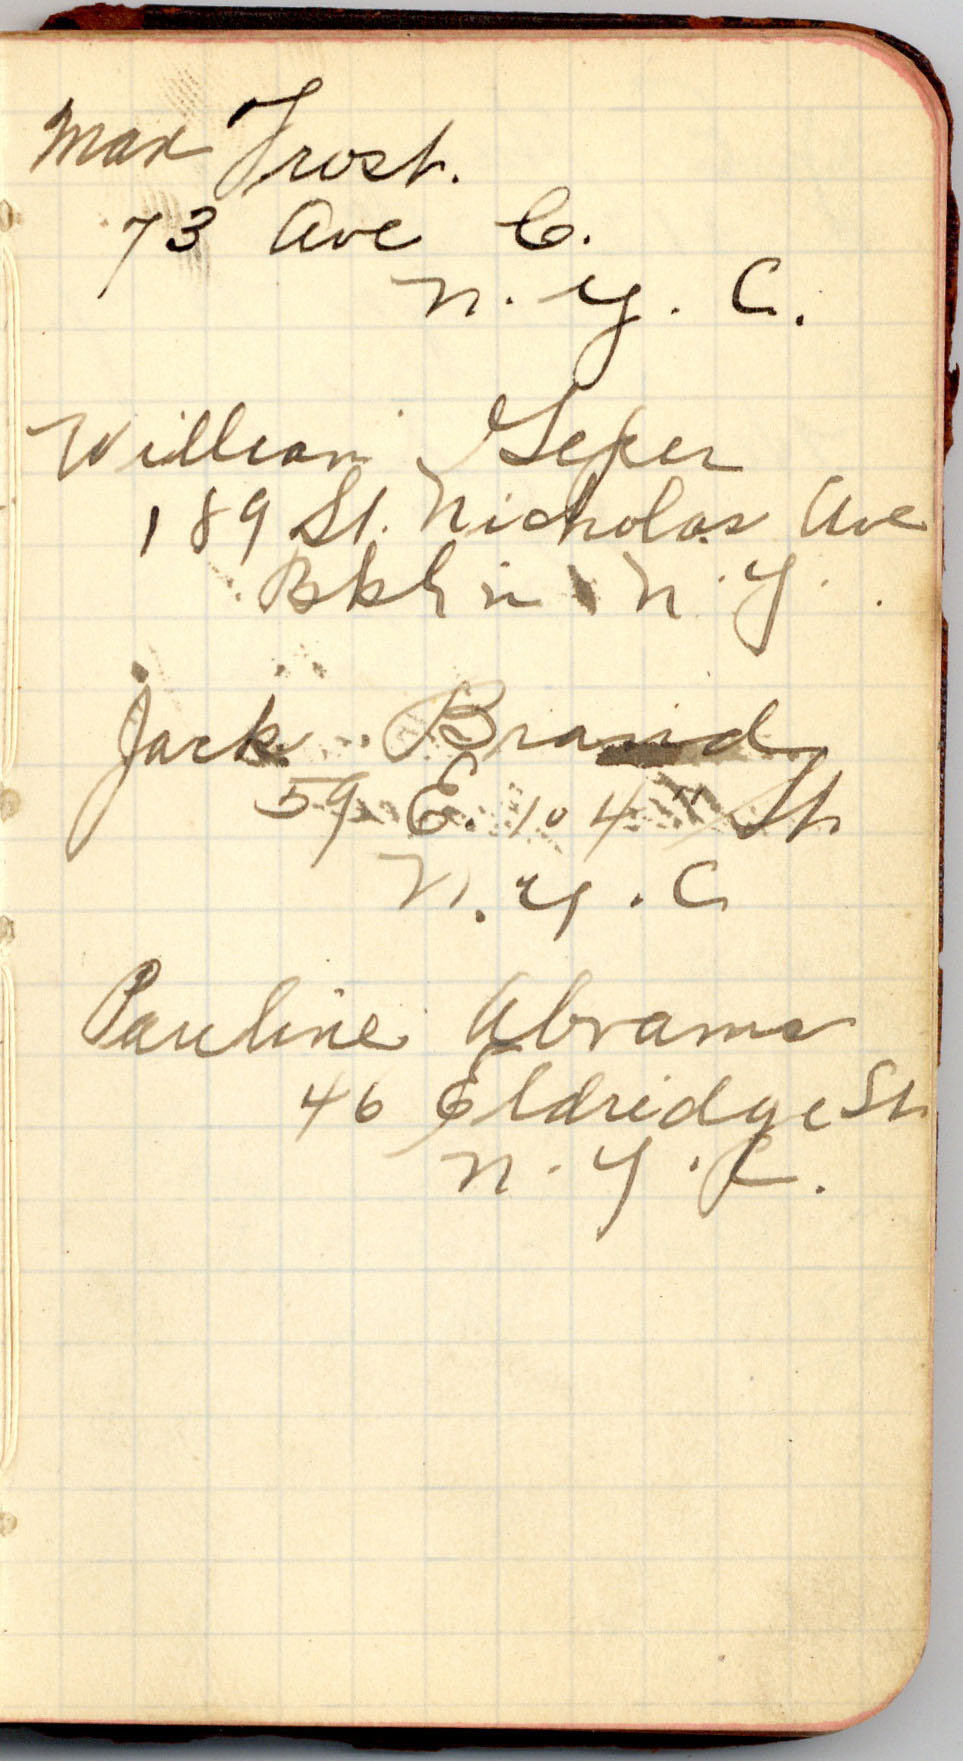 Max Frost.
73 Ave C.
N. Y. C.
William
189 St. Nicholas Ave
Bklin N. Y.
Jack Brand
59 E. 104" St
N. Y. C
Pauline Abrams
46 Eldridge St
N. Y. C.